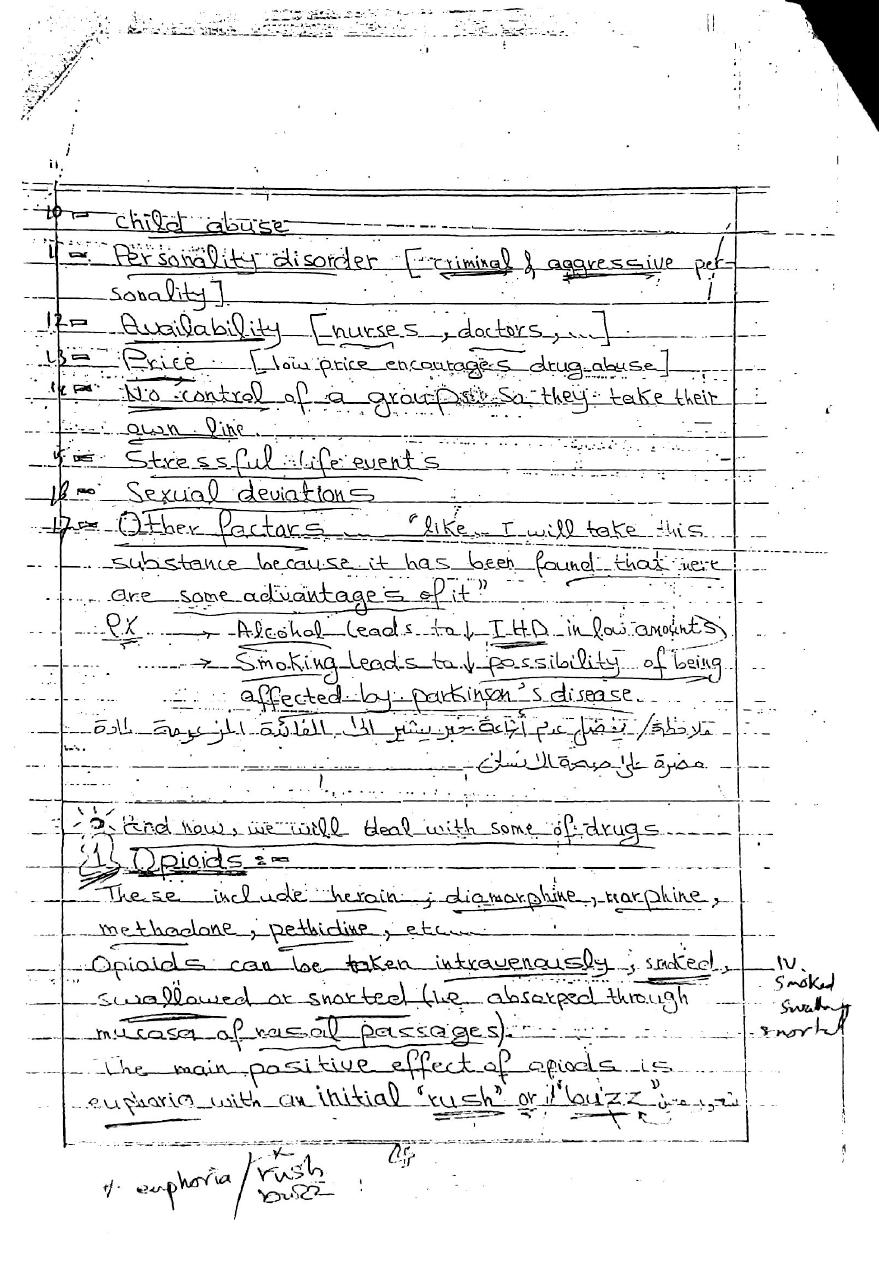 10- child abuse
11- Personality disorder [criminal & aggressive per-
sonality]
12- Availability [nurses, doctors, ...]
13- Price [low price encourages drug abuse]
14- No control of a group so they take their
own line
15- Stressful life events
16- Sexual deviations
17- Other factors ... "like I will take this
substance because it has been found that there
are some advantages of it"
ex → Alcohol leads to ↓ IHD in low amounts
→ Smoking leads to ↓ possibility of being
affected by parkinson's disease
ملاحظة/ تفضل عدم إذاعة خبر يشير إلى الفائدة المزعومة لمادة
مضرة على صحة الانسان
And now, we will deal with some of drugs
1 Opioids :-
These include heroin, diamorphine, morphine,
methadone, pethidine, etc...
Opioids can be taken intravenously, smoked,
swallowed or snorted (i.e absorped through
mucosa of nasal passages).
IV.
smoked
swallow
snorted
The main positive effect of opiods is
euphoria with an initial "rush" or "buzz"
euphoria / rush
buzz